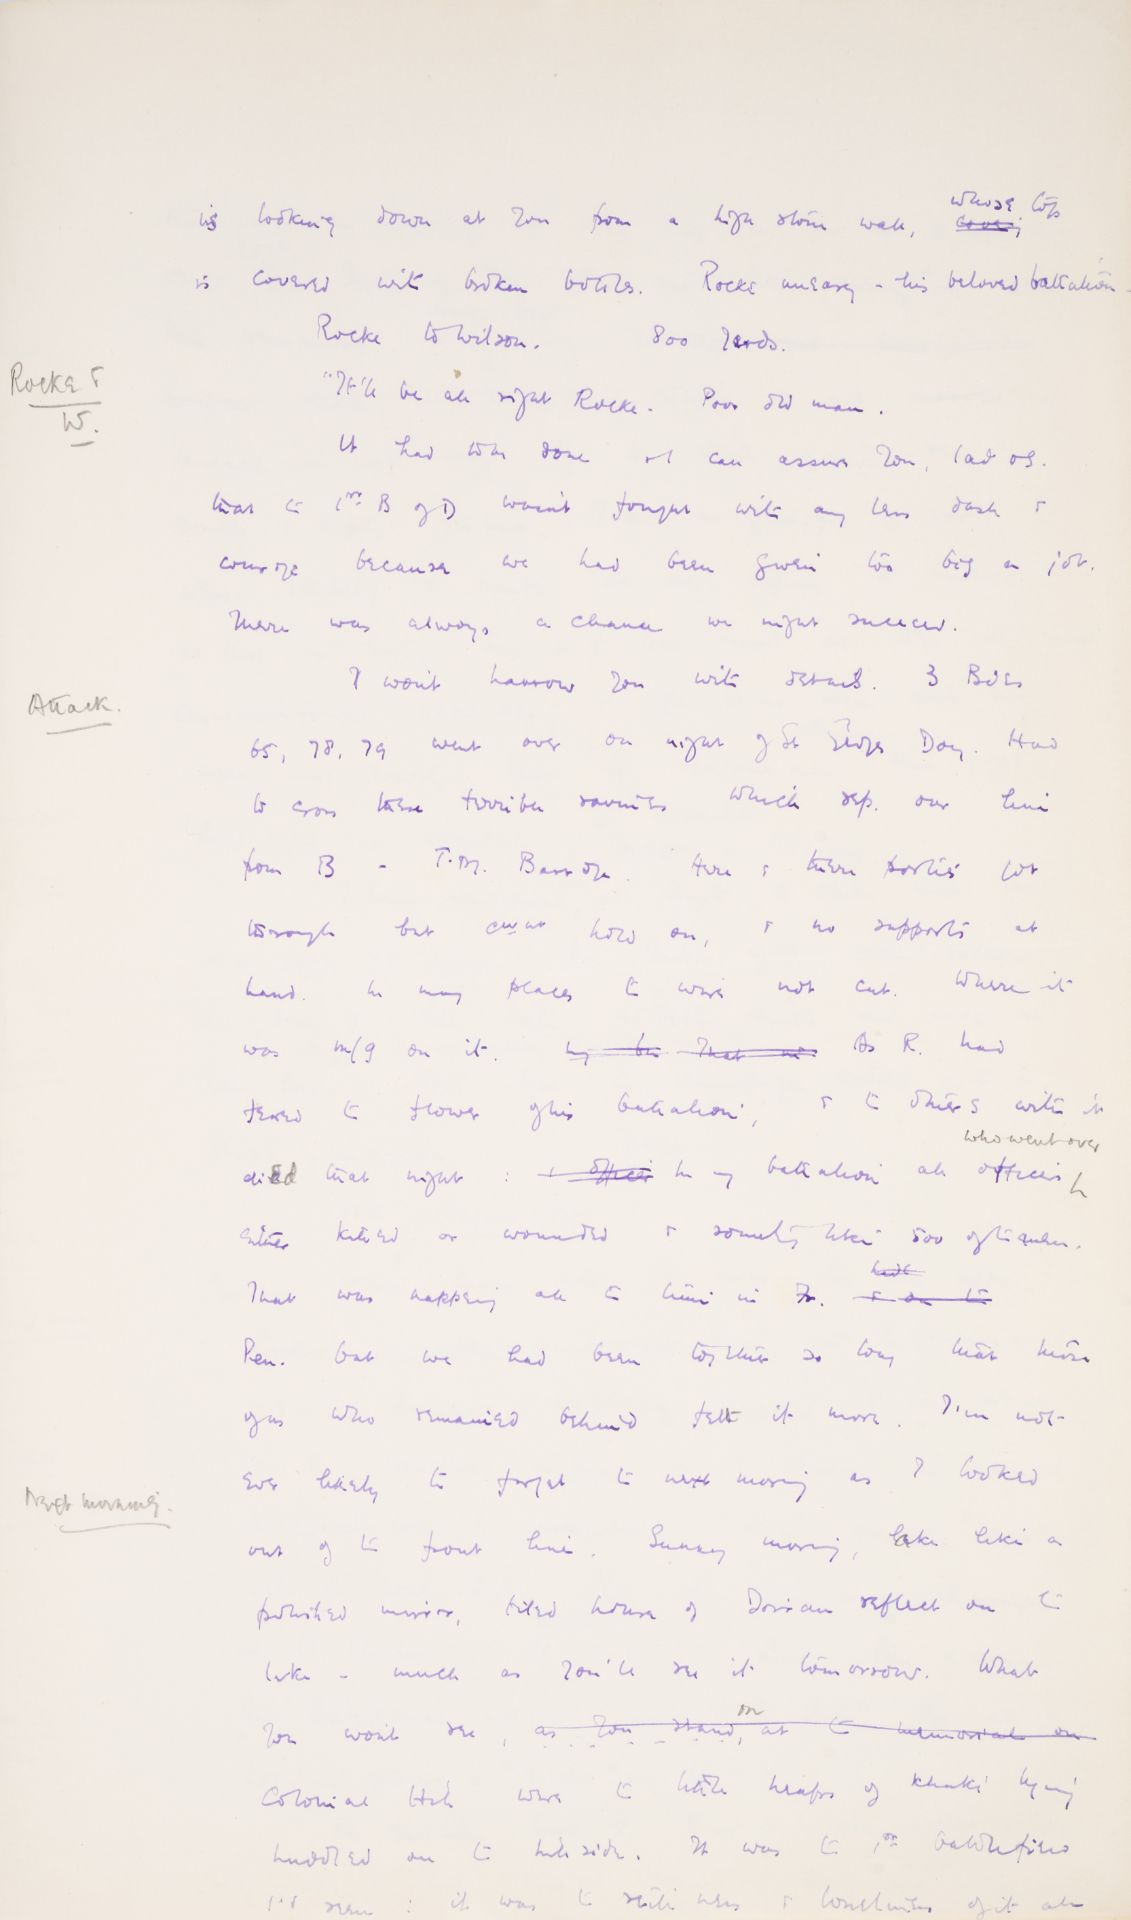 is looking down at you from a high stone wall, whose top
is covered with broken bottles. Rocke uneasy - his beloved battalion -
Rocke to Wilson. 800 yards.
Rocke &
W.
"It'll be all right Rocke. Poor old man.
It had to be done & I can assure you,
that t 1st B of D wasn't fought with any less dash &
courage because we had been given too big a job.
There was always a chance we might succeed.
Attack.
I won't harrow you with details. 3 Bdes
65, 78, 79 went over on night of St Georges Day. Had
to cross these terrible ravines which sep. our line
from B - T.M. Barrage. Here & there parties got
through but hold on, & no supports at
hand. In many places t wire not cut. Where it
was m/g on it. That As R. had
feared t flower of his battalion, & t others with it
who went over
died that night : & officers In my battalion all officers
either killed or wounded & something like 500 of the men.
That was happening all t time in Fr. & on t
Pen. but we had been together so long that those
of us who remained behind felt it more. I'm not
Next morning.
ever likely to forget t next morning as I looked
out of t front line. Sunny morning, lake like a
polished mirror, tiled house of Doiran reflect on t
lake - much as you'll see it tomorrow. What
you won't see, as you stand, on at t memorial on
Colonial Hill were t little heaps of khaki lying
huddled on t hillside. It was t 1st battlefield
I'd seen : it was t stillness & loneliness of it all